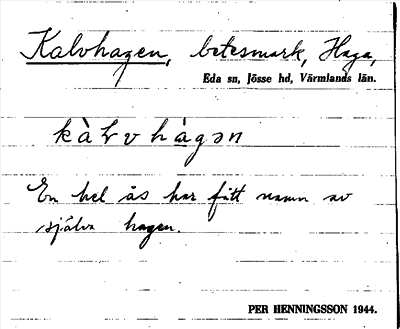 Kalvhagen, betesmark, Haga,
Eda sn, Jösse hd, Värmlands län.
kàɽvhàgən
En hel ås har fått namn av
själva hagen.
PER HENNINGSSON 1944.